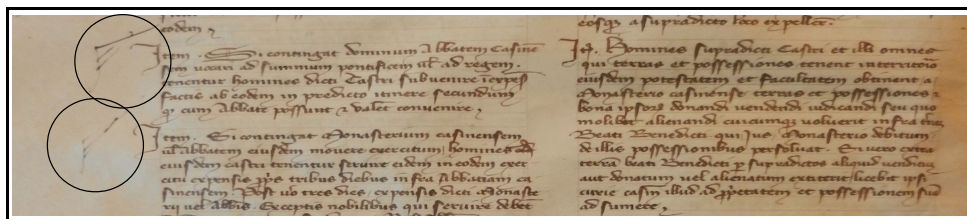 eodem
Item. Si contingat dominum Abbatem Casine
sem vocari ad summum pontificem ul ad regem.
tenentur homines dicti Castri subuenire i expes
factis ab eodem in predicto itinere secundum
q cum Abbate possunt & valet conuenire,
Item. Si contingat Monasterium casinensem
ul abbatem eiusdem mouere exercitum, homines
eiusdem castri tenentur seruire eidem in eodem exer
citu expensis pijs tribus diebus infra Abbatiam ca
sinensem. Post uo tres dies, expensis dicti Monaste
rij uel Abbis. Exceptis nobilibus qui seruire debet
eosq a supradicto loco expellet.
It. Homines supradicti Castri et illi omnes
qui terras et possessiones tenent in territorio
eiusdem potestatem et facultatem obtinent a
Monasterio casinense terras et possessiones &
bona ipsor donandi uendendi iudicandi seu quo
molibet alienandi cuicumq voluerit infra
Beati Benedicti qui Jus. Monasterio debitum
de illis possessionibus persoluat. Si uero extra
terra beati Benedicti p supradictos aliquid uenditu
aut donatum uel alienatum extiterit, licebit ipsi
curie casin illud ad ppetatem et possessionem sua
ad sumere,